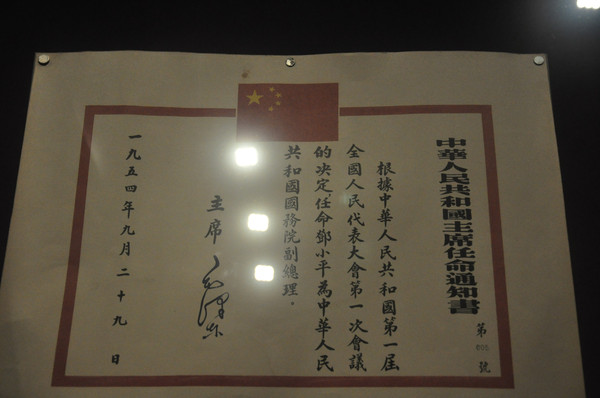 中華人民共和國主席任命通知書
第 號
根據中華人民共和國第一屆
全國人民代表大會第一次會議
的决定，任命鄧小平為中華人民
共和國國務院副總理。
主席 毛澤東
一九五四年九月二十九日